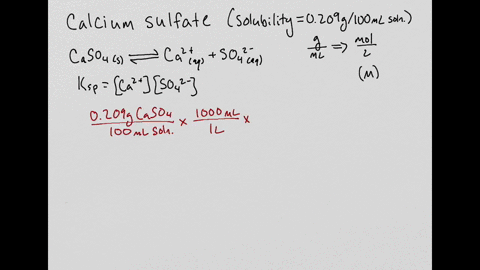 Calcium sulfate (solubility = 0.209g/100mL soln.)
g/mL ⇒ mol/L
(M)
CaSO₄(s) ⇌ Ca²⁺(aq) + SO₄²⁻(aq)
Ksp = [Ca²⁺][SO₄²⁻]
0.209g CaSO₄/100mL Soln. × 1000mL/1L ×